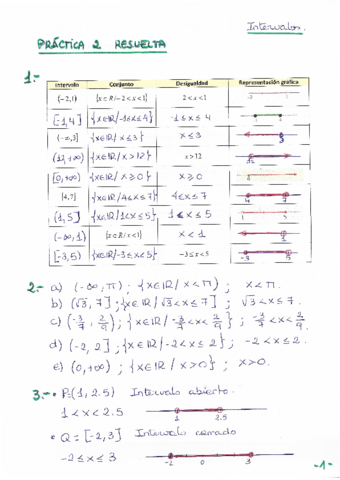 Intervalos.
PRÁCTICA 2 RESUELTA
1.-
Intervalo Conjunto Desigualdad Representación gráfica
(-2,1) {x∈R/-2<x<1} 2<x<1 -2 1
[-1,4] {x∈IR/-1≤x≤4} -1≤x≤4
(-∞,3] {x∈IR/x≤3} x≤3 3
(12,+∞) {x∈IR/x>12} x>12 12
[0,+∞) {x∈IR/x≥0} x≥0
[4,7] {x∈IR/4≤x≤7} 4≤x≤7 4 7
(1,5] {x∈IR/1<x≤5} 1<x≤5 1 5
(-∞,1) {x∈R/x<1} x<1 1
[-3,5) {x∈IR/-3≤x<5} -3≤x<5 -3
2.- a) (-∞, π) ; {x∈IR/x<π} ; x<π.
b) (√3, 7] ; {x∈IR/√3<x≤7] ; √3<x≤7.
c) (-3/7, 2/9) ; {x∈IR/-3/7<x<2/9} ; -3/7<x<2/9.
d) (-2, 2] ; {x∈IR/-2<x≤2} ; -2<x≤2.
e) (0,+∞) ; {x∈IR/x>0} ; x>0.
3.- • P=(1, 2.5) Intervalo abierto.
1<x<2.5 1 2.5
• Q = [-2,3] Intervalo cerrado
-2≤x≤3 -2 0 3
-1-